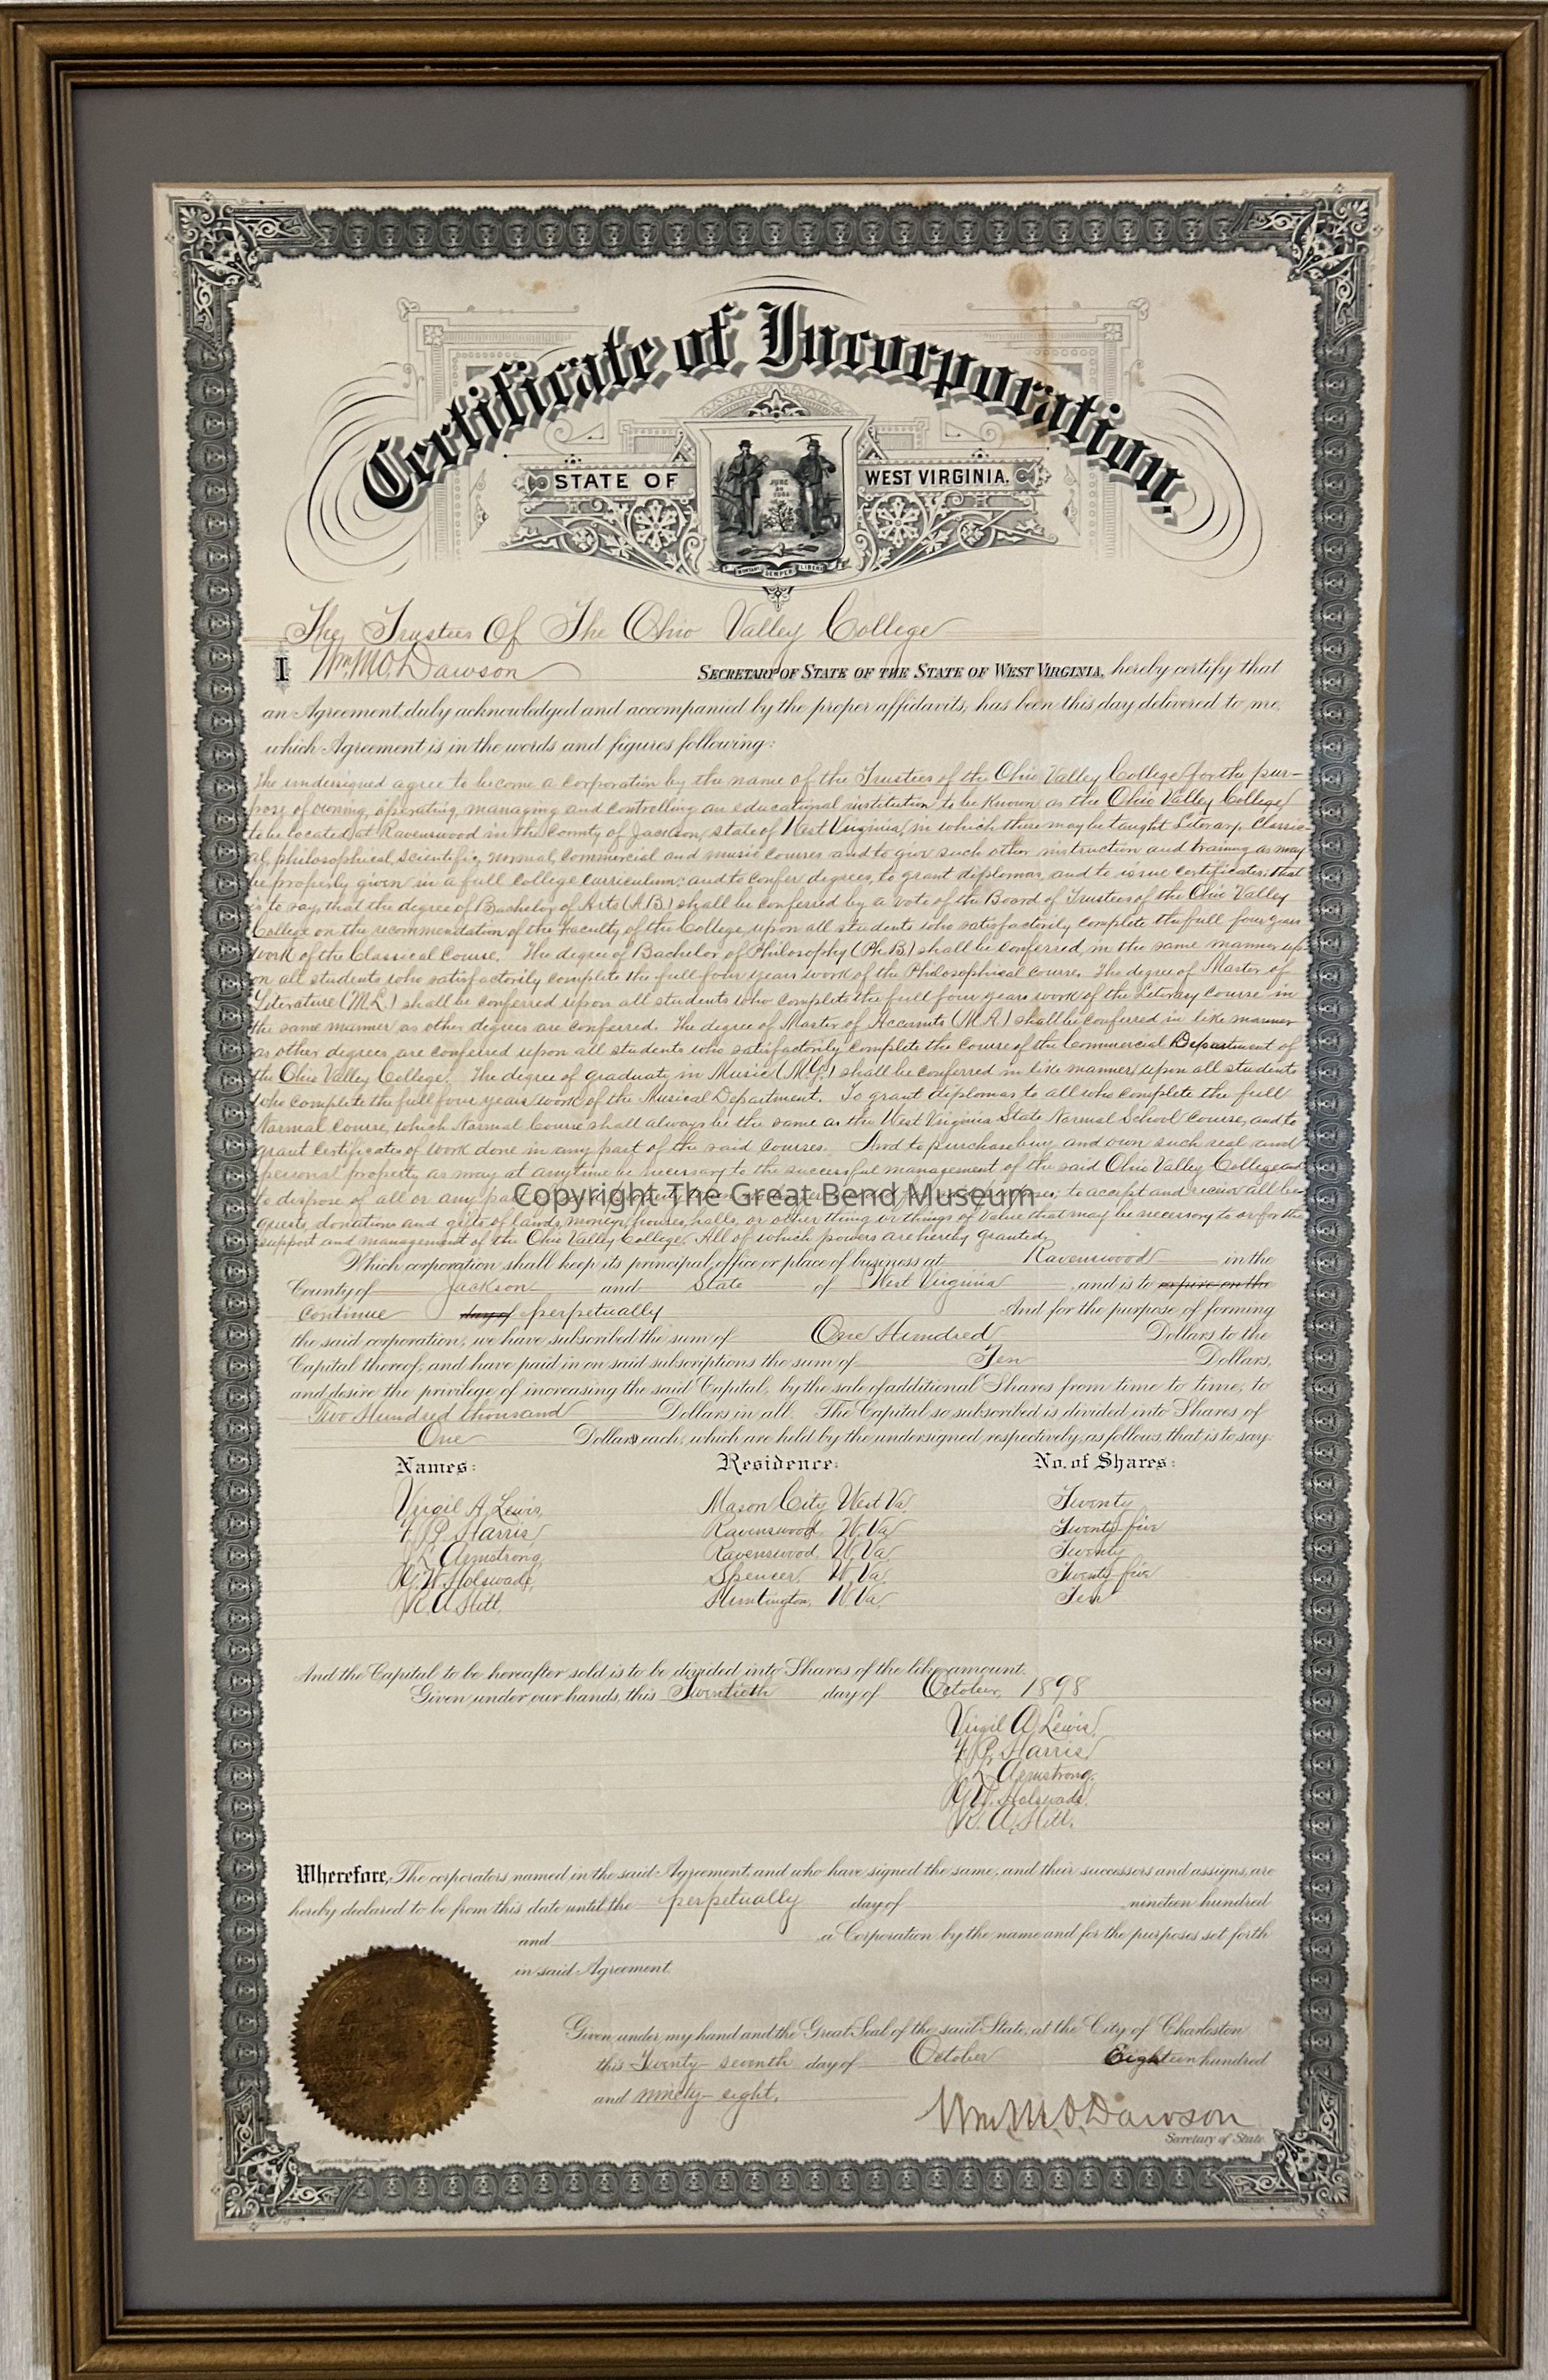 Certificate of Incorporation.
STATE OF WEST VIRGINIA.
JUNE 20 1863
MONTANI SEMPER LIBERI
The Trustees Of The Ohio Valley College
I Wm. M. O. Dawson SECRETARY OF STATE OF THE STATE OF WEST VIRGINIA, hereby certify that
an Agreement, duly acknowledged and accompanied by the proper affidavits, has been this day delivered to me,
which Agreement is in the words and figures following:
The undersigned agree to become a corporation by the name of the Trustees of the Ohio Valley College for the pur-
pose of owning, operating, managing and controlling an educational institution to be known as the Ohio Valley College
to be located at Ravenswood in the County of Jackson, state of West Virginia, in which there may be taught Literary, Classic-
al, philosophical, scientific, normal, commercial and music courses and to give such other instruction and training as may
be properly given in a full college curriculum; and to confer degrees, to grant diplomas, and to issue certificates: that
is to say, that the degree of Bachelor of Arts (A.B.) shall be conferred by a vote of the Board of Trustees of the Ohio Valley
College on the recommendation of the Faculty of the College, upon all students who satisfactorily complete the full four years
work of the Classical Course. The degree of Bachelor of Philosophy (Ph.B.) shall be conferred, in the same manner up-
on all students who satisfactorily complete the full four years work of the Philosophical course. The degree of Master of
Literature (M.L.) shall be conferred upon all students who complete the full four years work of the Literary Course in
the same manner as other degrees are conferred. The degree of Master of Accounts (M.A.) shall be conferred in like manner
as other degrees are conferred upon all students who satisfactorily complete the Course of the Commercial Department of
the Ohio Valley College. The degree of graduate in Music (M.G.) shall be conferred in like manner upon all students
who complete the full four years work of the Musical Department. To grant diplomas to all who complete the full
Normal Course, which Normal Course shall always be the same as the West Virginia State Normal School Course, and to
grant certificates of work done in any part of the said courses. And to purchase, buy and own such real and
personal property as may at anytime be necessary to the successful management of the said Ohio Valley College and
to dispose of all or any to accept and receive all be-
Copyright The Great Bend Museum
quests, donations and gifts of lands, moneys, houses, halls, or other thing or things of value that may be necessary to or for the
support and management of the Ohio Valley College. All of which powers are hereby granted.
Which corporation shall keep its principal office or place of business at Ravenswood in the
County of Jackson and State of West Virginia, and is to expire on the
continue day of perpetually And for the purpose of forming
the said corporation, we have subscribed the sum of One Hundred Dollars to the
Capital thereof, and have paid in on said subscriptions the sum of Ten Dollars,
and desire the privilege of increasing the said Capital, by the sale of additional Shares from time to time, to
Two Hundred thousand Dollars in all. The Capital so subscribed is divided into Shares of
One Dollars each, which are held by the undersigned, respectively, as follows, that is to say:
Names: Residence: No. of Shares:
Virgil A. Lewis, Mason City West Va Twenty
P. Harris, Ravenswood, W. Va Twenty-five
J. L. Armstrong, Ravenswood, W. Va. Twenty
G. W. Holswade, Spencer, W. Va Twenty-five
R. A. Hill, Huntington, W. Va. Ten
And the Capital to be hereafter sold is to be divided into Shares of the like amount.
Given under our hands, this Twentieth day of October, 1898
Virgil A. Lewis,
P. Harris,
J. L. Armstrong.
G. W. Holswade.
R. A. Hill.
Wherefore, The corporators named in the said Agreement, and who have signed the same, and their successors and assigns, are
hereby declared to be from this date until the perpetually day of nineteen hundred
and a Corporation by the name and for the purposes set forth
in said Agreement.
Given under my hand and the Great Seal of the said State, at the City of Charleston
this Twenty-seventh day of October Eighteen hundred
and ninety-eight.
Wm. M. O. Dawson
Secretary of State.